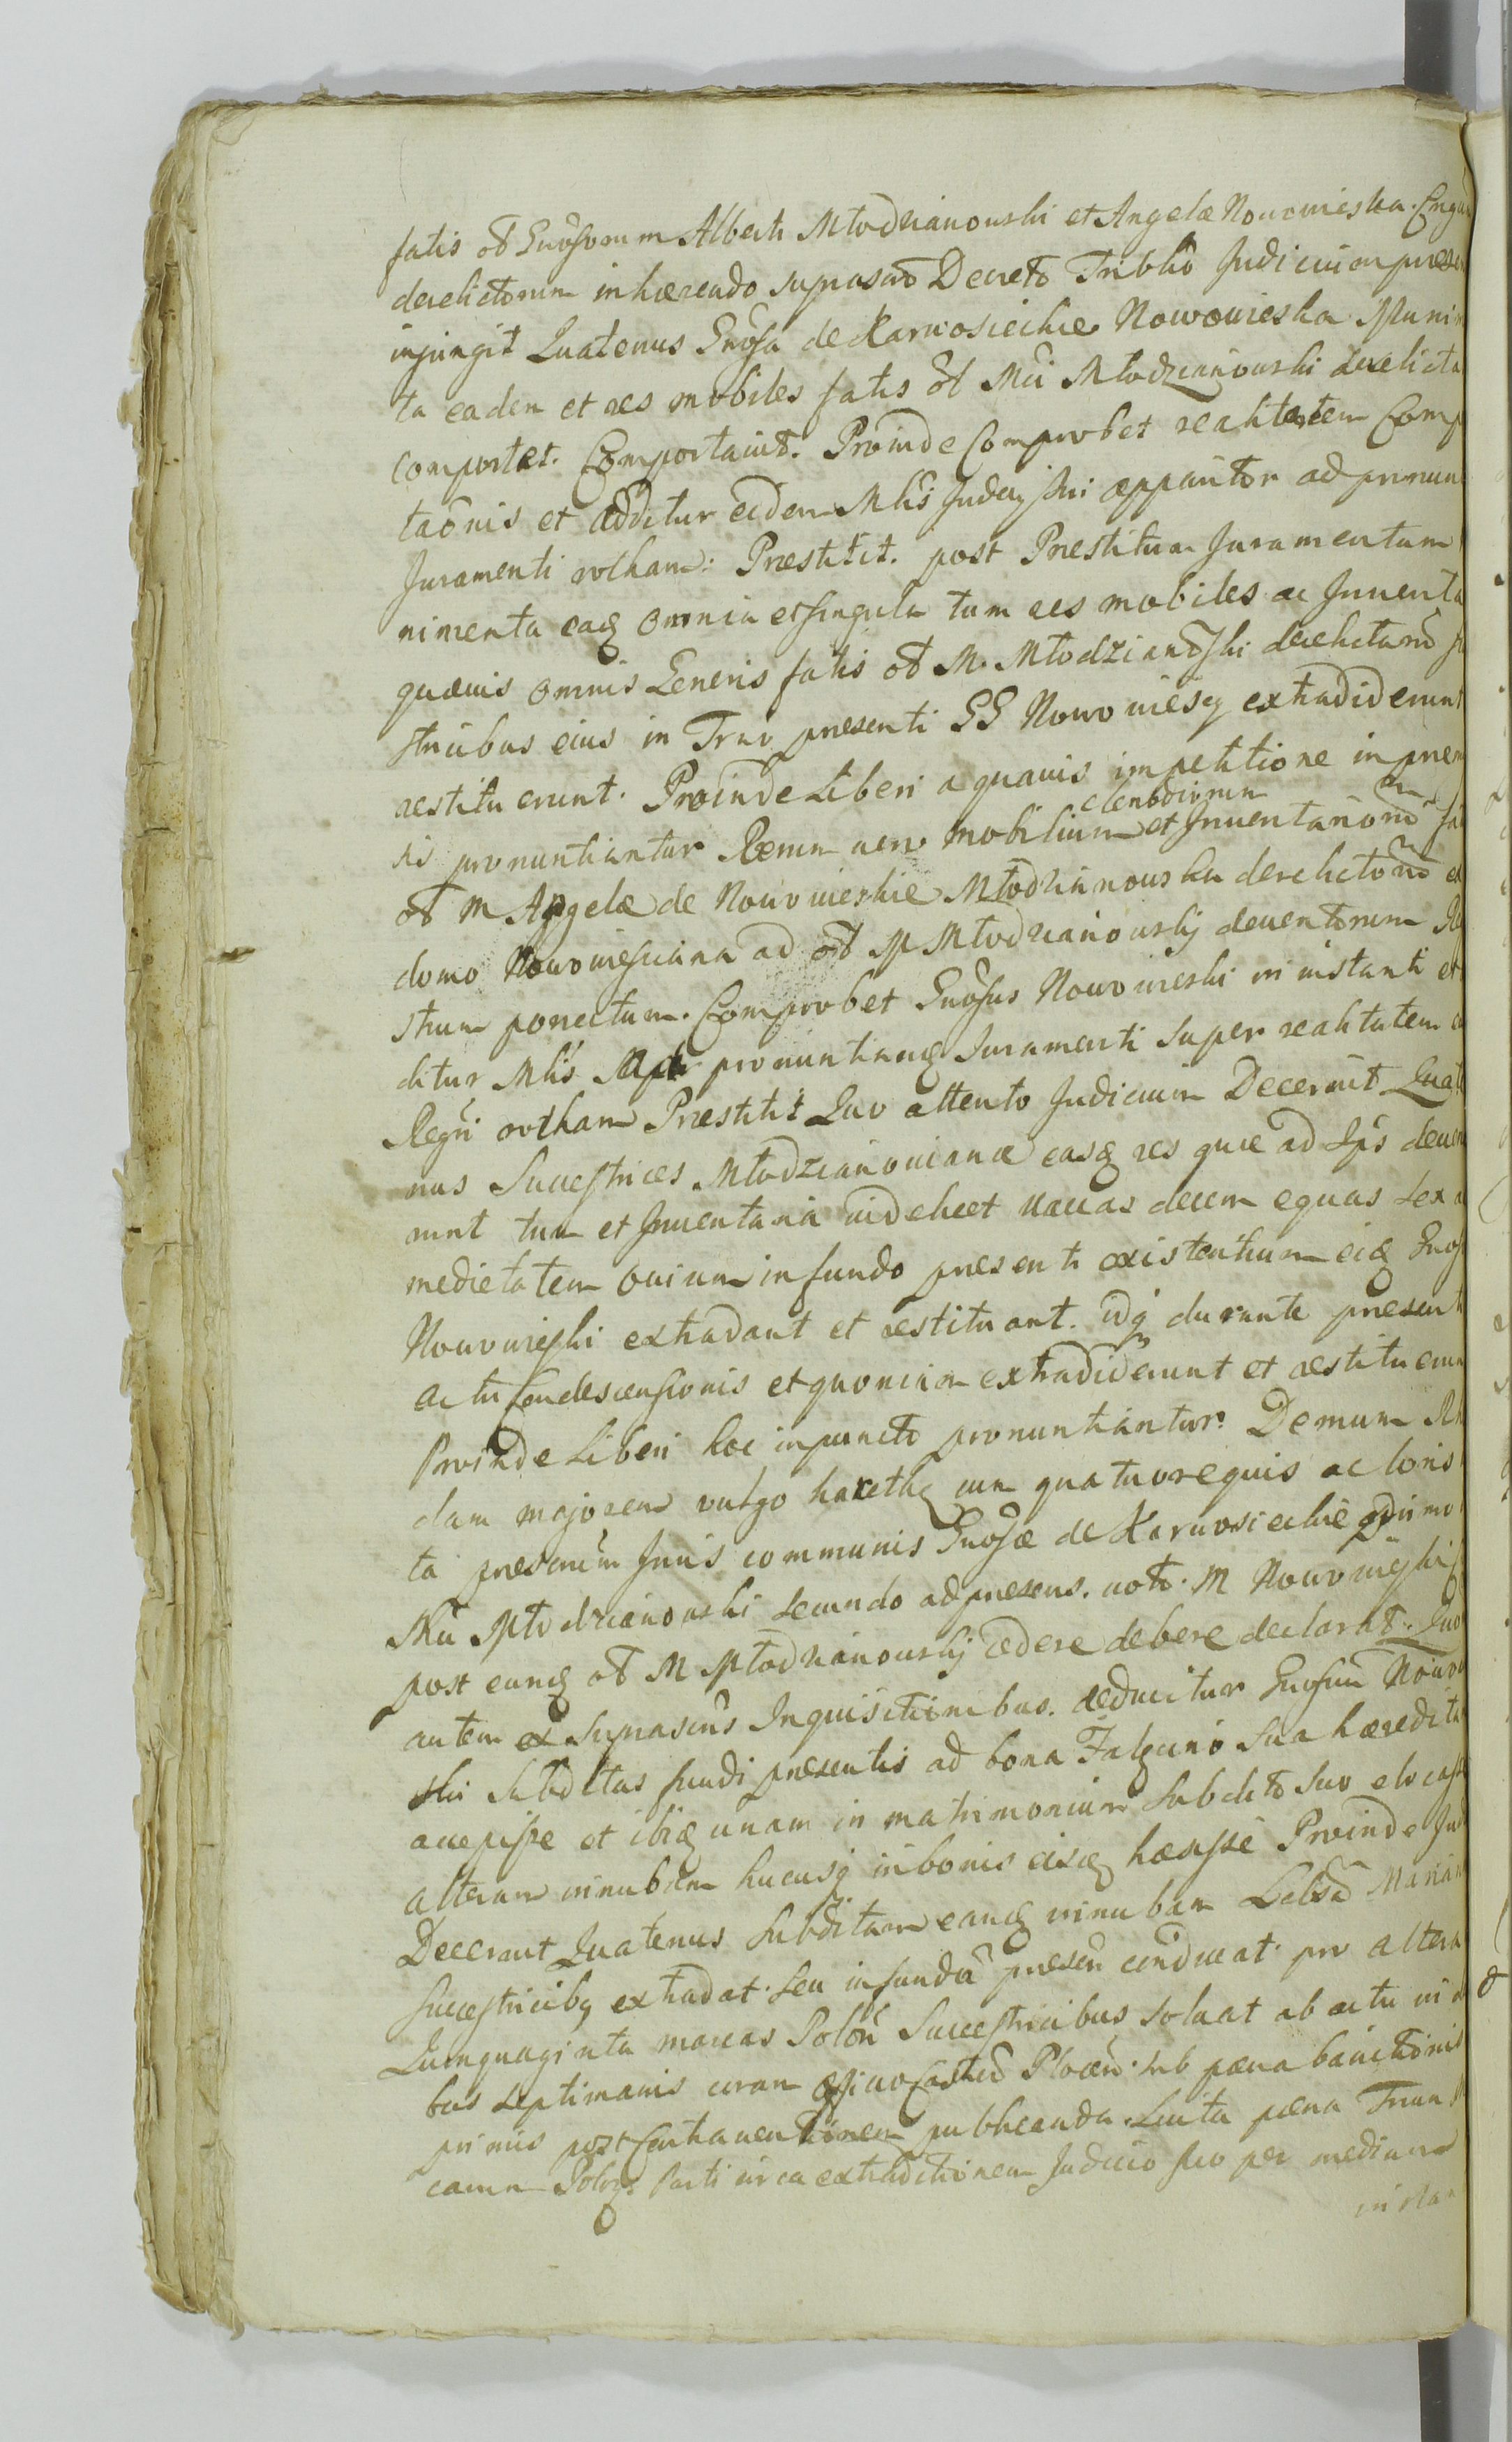 fatis ol Gnôsorum Alberti Młodzianowski et Angelæ Nowowieska Congu
derelictorum inhærendo suprascro Decreto Triblii Judicium præse
injungit Quatenus Gnôsa de Karwosieckie Nowowieska Muni
ta eadem et res mobiles fatis ol Mci Młodzianowski derelicta
comportet. Comportavit. Proinde Comprobet realitatem Comp
taônis et additur eidem Mlis Judicij sui apparitor ad pronun
Juramenti rotham: Præstitit. post Præstitum Juramentum
nimenta eaq omnia et singula tum res mobiles ac Inventa
quævis omnis Generis fatis ol M. Młodzianoski derelictarū su
stricibus eius in Trno presenti GG Nowowiescy extradiderunt
restituerunt. Proinde Liberi a quavis impetitione in prem
is pronuntiantur Rerum vero mobilium clenodiorum et Inventariorū fa
ol M Angelæ de Nowowieskie Młodzianowska derelictorū e
domo Nowowiesciana ad ol M Młodzianowskij deventorum Re
strum porrectum. Comprobet Gnôsus Nowowieski in instanti et
ditur Mlis Appr pronuntianq Juramenti super realitatem e
Regri rotham Præstitit Quo attento Judicium Decernit Quate
nus Succestrices Młodzianovianæ easq res quæ ad Ips deven
runt tum et Inventaria videlicet vaccas decem equas sex a
medietatem ovium in fundo presenti existentium eiq Gnos
Nowowieski extradant et restituant. idq durante present
actu Condescensionis et quoniam extradiderunt et restituerun
Proinde Liberi hoc in puncto pronuntiantur. Demum Rh
dam majorem vulgo karethę cum quatuor equis ac loris
ta præscrum Juris communis Gnôsæ de Karwosieckie primo
Mci Młodzianowski secundo ad presens. voto. M Nowowieski
post eunq ol M Młodzianowskij cedere debere declarat. Quo
autem ex suprascris Inquisitionibus. deducitur Gnosum Nowo
ski subditas fundi presentis ad bona Zalęcino sua hæredita
accepisse et ibiq unam in matrimonium subdito suo elocass
alteram innubam hucusq in bonis eisq hæsisse Proinde Ju
Decernit Quatenus subditam eanq innubam Labsā Marian
succestricibq extradat. seu in fundū presen conducat. pro altera
Quinquaginta marcas Polon Succestricibus solvat ab actu in
bus septimanis coram offo Castren Plocen. sub pæna bannitionis
primis post Contraventionem publicanda. Luita pæna Trium
carum Polonq. Parti circa extraditionem Judicio suo per medium
in star